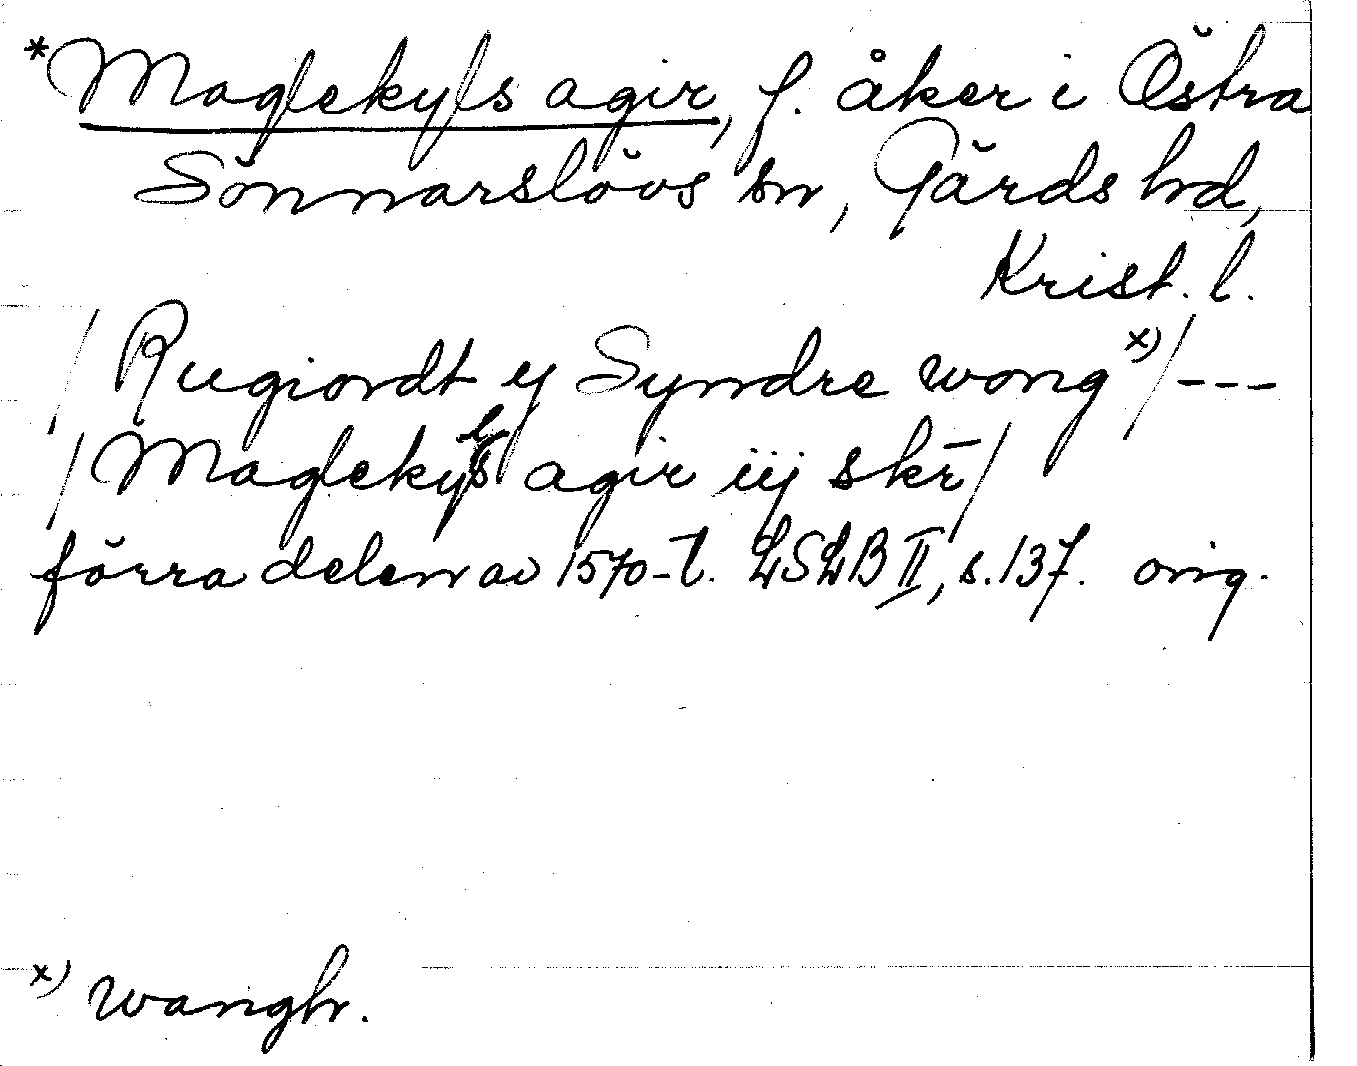 *Maglekyls agir, f. åker i Östra
Sönnarslövs sn, Gärds hd,
Krist. l.
/Rugiordt y Syndre wong x)/---
/Maglekyls agir iij skr̄/
förra delen av 1570-t. LSLB II, s. 137. orig.
x) wangh.